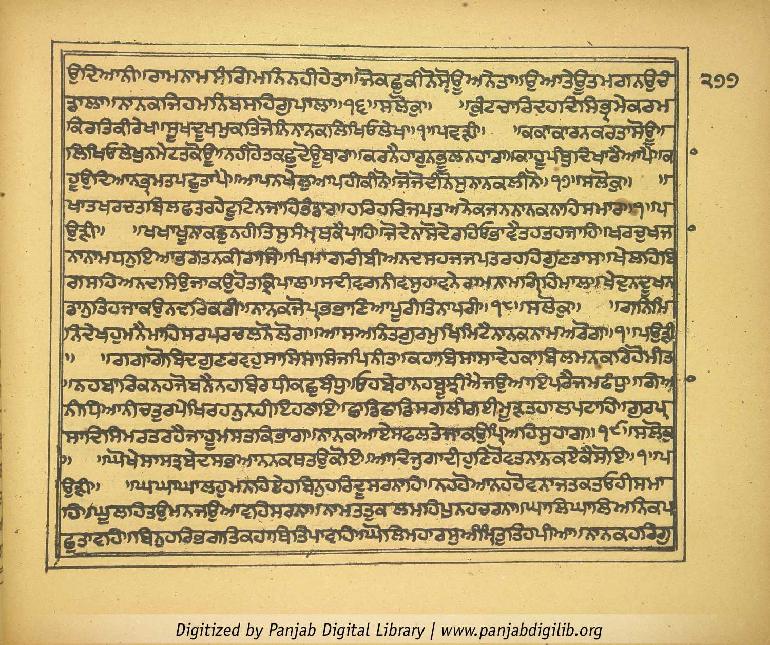 ਉਦਿਆਨੀ॥ਰਾਮਨਾਮਸੰਗਿਮਨਿਨਹੀਹੇਤਾ॥ਜੋਕਛੁਕੀਨੋਸੋਊਅਨੇਤਾ॥ਉਆਤੇਊਤਮਗਨਉਚੰ ੨੭੭
ਡਾਲਾ॥ਨਾਨਕਜਿਹਮਨਿਬਸਹਿਗੁਪਾਲਾ॥੧੬॥ਸਲੋਕੁ॥ ਕੁੰਟਚਾਰਿਦਹਦਿਸਿਭ੍ਰਮੇਕਰਮ
ਕਿਰਤਿਕੀਰੇਖ॥ਸੂਖਦੂਖਮੁਕਤਿਜੋਨਿਨਾਨਕਲਿਖਿਓਲੇਖ॥੧॥ਪਵੜੀ॥ ਕਕਾਕਾਰਨਕਰਤਾਸੋਊ॥
ਲਿਖਿਓਲੇਖੁਨਮੇਟਤਕੋਊ॥ਨਹੀਹੋਤਕਛੁਦੋਊਬਾਰਾ॥ਕਰਨੈਹਾਰੁਨਭੂਲਨਹਾਰਾ॥ਕਾਹੂਪੰਥੁਦਿਖਾਰੈਆਪੈ॥ਕਾ
ਹੂਉਦਿਆਨਭ੍ਰਮਤਪਛੁਤਾਪੈ॥ਆਪਨਖੇਲੁਆਪਹੀਕੀਨੋ॥ਜੋਜੋਦੀਨੋਸੁਨਾਨਕਲੀਨੋ॥੧੭॥ਸਲੋਕੁ॥ ॥
ਖਾਤਖਰਚਤਬਿਲਛਤਰਹੇਟੂਟਿਨਜਾਹਿਭੰਡਾਰ॥ਹਰਿਹਰਿਜਪਤਅਨੇਕਜਨਨਾਨਕਨਾਹਿਸੁਮਾਰ॥੧॥ਪ
ਉੜੀ॥ ਖਖਾਖੂਨਾਕਛੁਨਹੀਤਿਸੁਸੰਮ੍ਰਥਕੈਪਾਹਿ॥ਜੋਦੇਨਾਸੋਦੇਰਹਿਓਭਾਵੈਤਹਤਹਜਾਹਿ॥ਖਰਚੁਖਜਾ
ਨਾਨਾਮਧਨੁਇਆਭਗਤਨਕੀਰਾਸਿ॥ਖਿਮਾਗਰੀਬੀਅਨਦਸਹਜਜਪਤਰਹਹਿਗੁਣਤਾਸ॥ਖੇਲਹਿਬਿ
ਗਸਹਿਅਨਦਸਿਉਜਾਕਉਹੋਤਕ੍ਰਿਪਾਲ॥ਸਦੀਵਗਨੀਵਸੁਹਾਵਨੇਰਾਮਨਾਮਗ੍ਰਿਹਿਮਾਲ॥ਖੇਦੁਨਦੂਖੁਨ
ਡਾਨੁਤਿਹਜਾਕਉਨਦਰਿਕਰੀ॥ਨਾਨਕਜੋਪ੍ਰਭਭਾਣਿਆਪੂਰੀਤਿਨਾਪਰੀ॥੧੮॥ਸਲੋਕੁ॥ ਗਨਿਮਿ
ਨਿਦੇਖਹੁਮਨੈਮਾਹਿਸਰਪਰਚਲਨੋਲੋਗ॥ਆਸਅਨਿਤਗੁਰਮੁਖਿਮਿਟੈਨਾਨਕਨਾਮਅਰੋਗ॥੧॥ਪਉੜੀ
॥ ਗਗਾਗੋਬਿਦਗੁਣਰਵਹੁਸਾਸਿਸਾਸਿਜਪਿਨੀਤ॥ਕਹਾਬਿਸਾਸਾਦੇਹਕਾਬਿਲਮਨਕਰਿਹੋਮੀਤ
॥ਨਹਬਾਰਿਕਨਹਜੋਬਨੈਨਹਬਿਰਧੀਕਛੁਬੰਧੁ॥ਓਹਬੇਰਾਨਹਬੂਝੀਐਜਉਆਇਪਰੈਜਮਫੰਧੁ॥ਗਿਆ
ਨੀਧਿਆਨੀਚਤੁਰਪੇਖਿਰਹਨੁਨਹੀਇਹਠਾਇ॥ਛਾਡਿਛਾਡਿਸਗਲੀਗਈਮੂੜਤਹਾਲਪਟਾਹਿ॥ਗੁਰਪ੍ਰ
ਸਾਦਿਸਿਮਰਤਰਹੈਜਾਹੂਮਸਤਕਿਭਾਗ॥ਨਾਨਕਆਏਸਫਲਤੇਜਾਕਉਪ੍ਰਿਅਹਿਸੁਹਾਗ॥੧੯॥ਸਲੋਕੁ
॥ ਘੋਖੇਸਾਸਤ੍ਰਬੇਦਸਭਆਨਨਕਥਤਉਕੋਇ॥ਆਦਿਜੁਗਾਦੀਹੁਣਿਹੋਵਤਨਾਨਕਏਕੈਸੋਇ॥੧॥ਪ
ਉੜੀ॥ ਘਘਾਘਾਲਹੁਮਨਹਿਏਹਬਿਨੁਹਰਿਦੂਸਰਨਾਹਿ॥ਨਹਹੋਆਨਹਹੋਵਨਾਜਤਕਤਓਹੀਸਮਾ
ਹਿ॥ਘੂਲਹਿਤਉਮਨਜਉਆਵਹਿਸਰਨਾ॥ਨਾਮਤਤੁਕਲਮਹਿਪੁਨਹਚਰਨਾ॥ਘਾਲਿਘਾਲਿਅਨਿਕਪ
ਛੁਤਾਵਹਿ॥ਬਿਨੁਹਰਿਭਗਤਿਕਹਾਥਿਤਿਪਾਵਹਿ॥ਘੋਲਿਮਹਾਰਸੁਅੰਮ੍ਰਿਤੁਤਿਹਪੀਆ॥ਨਾਨਕਹਰਿਗੁ
Digitized by Panjab Digital Library | www.panjabdigilib.org